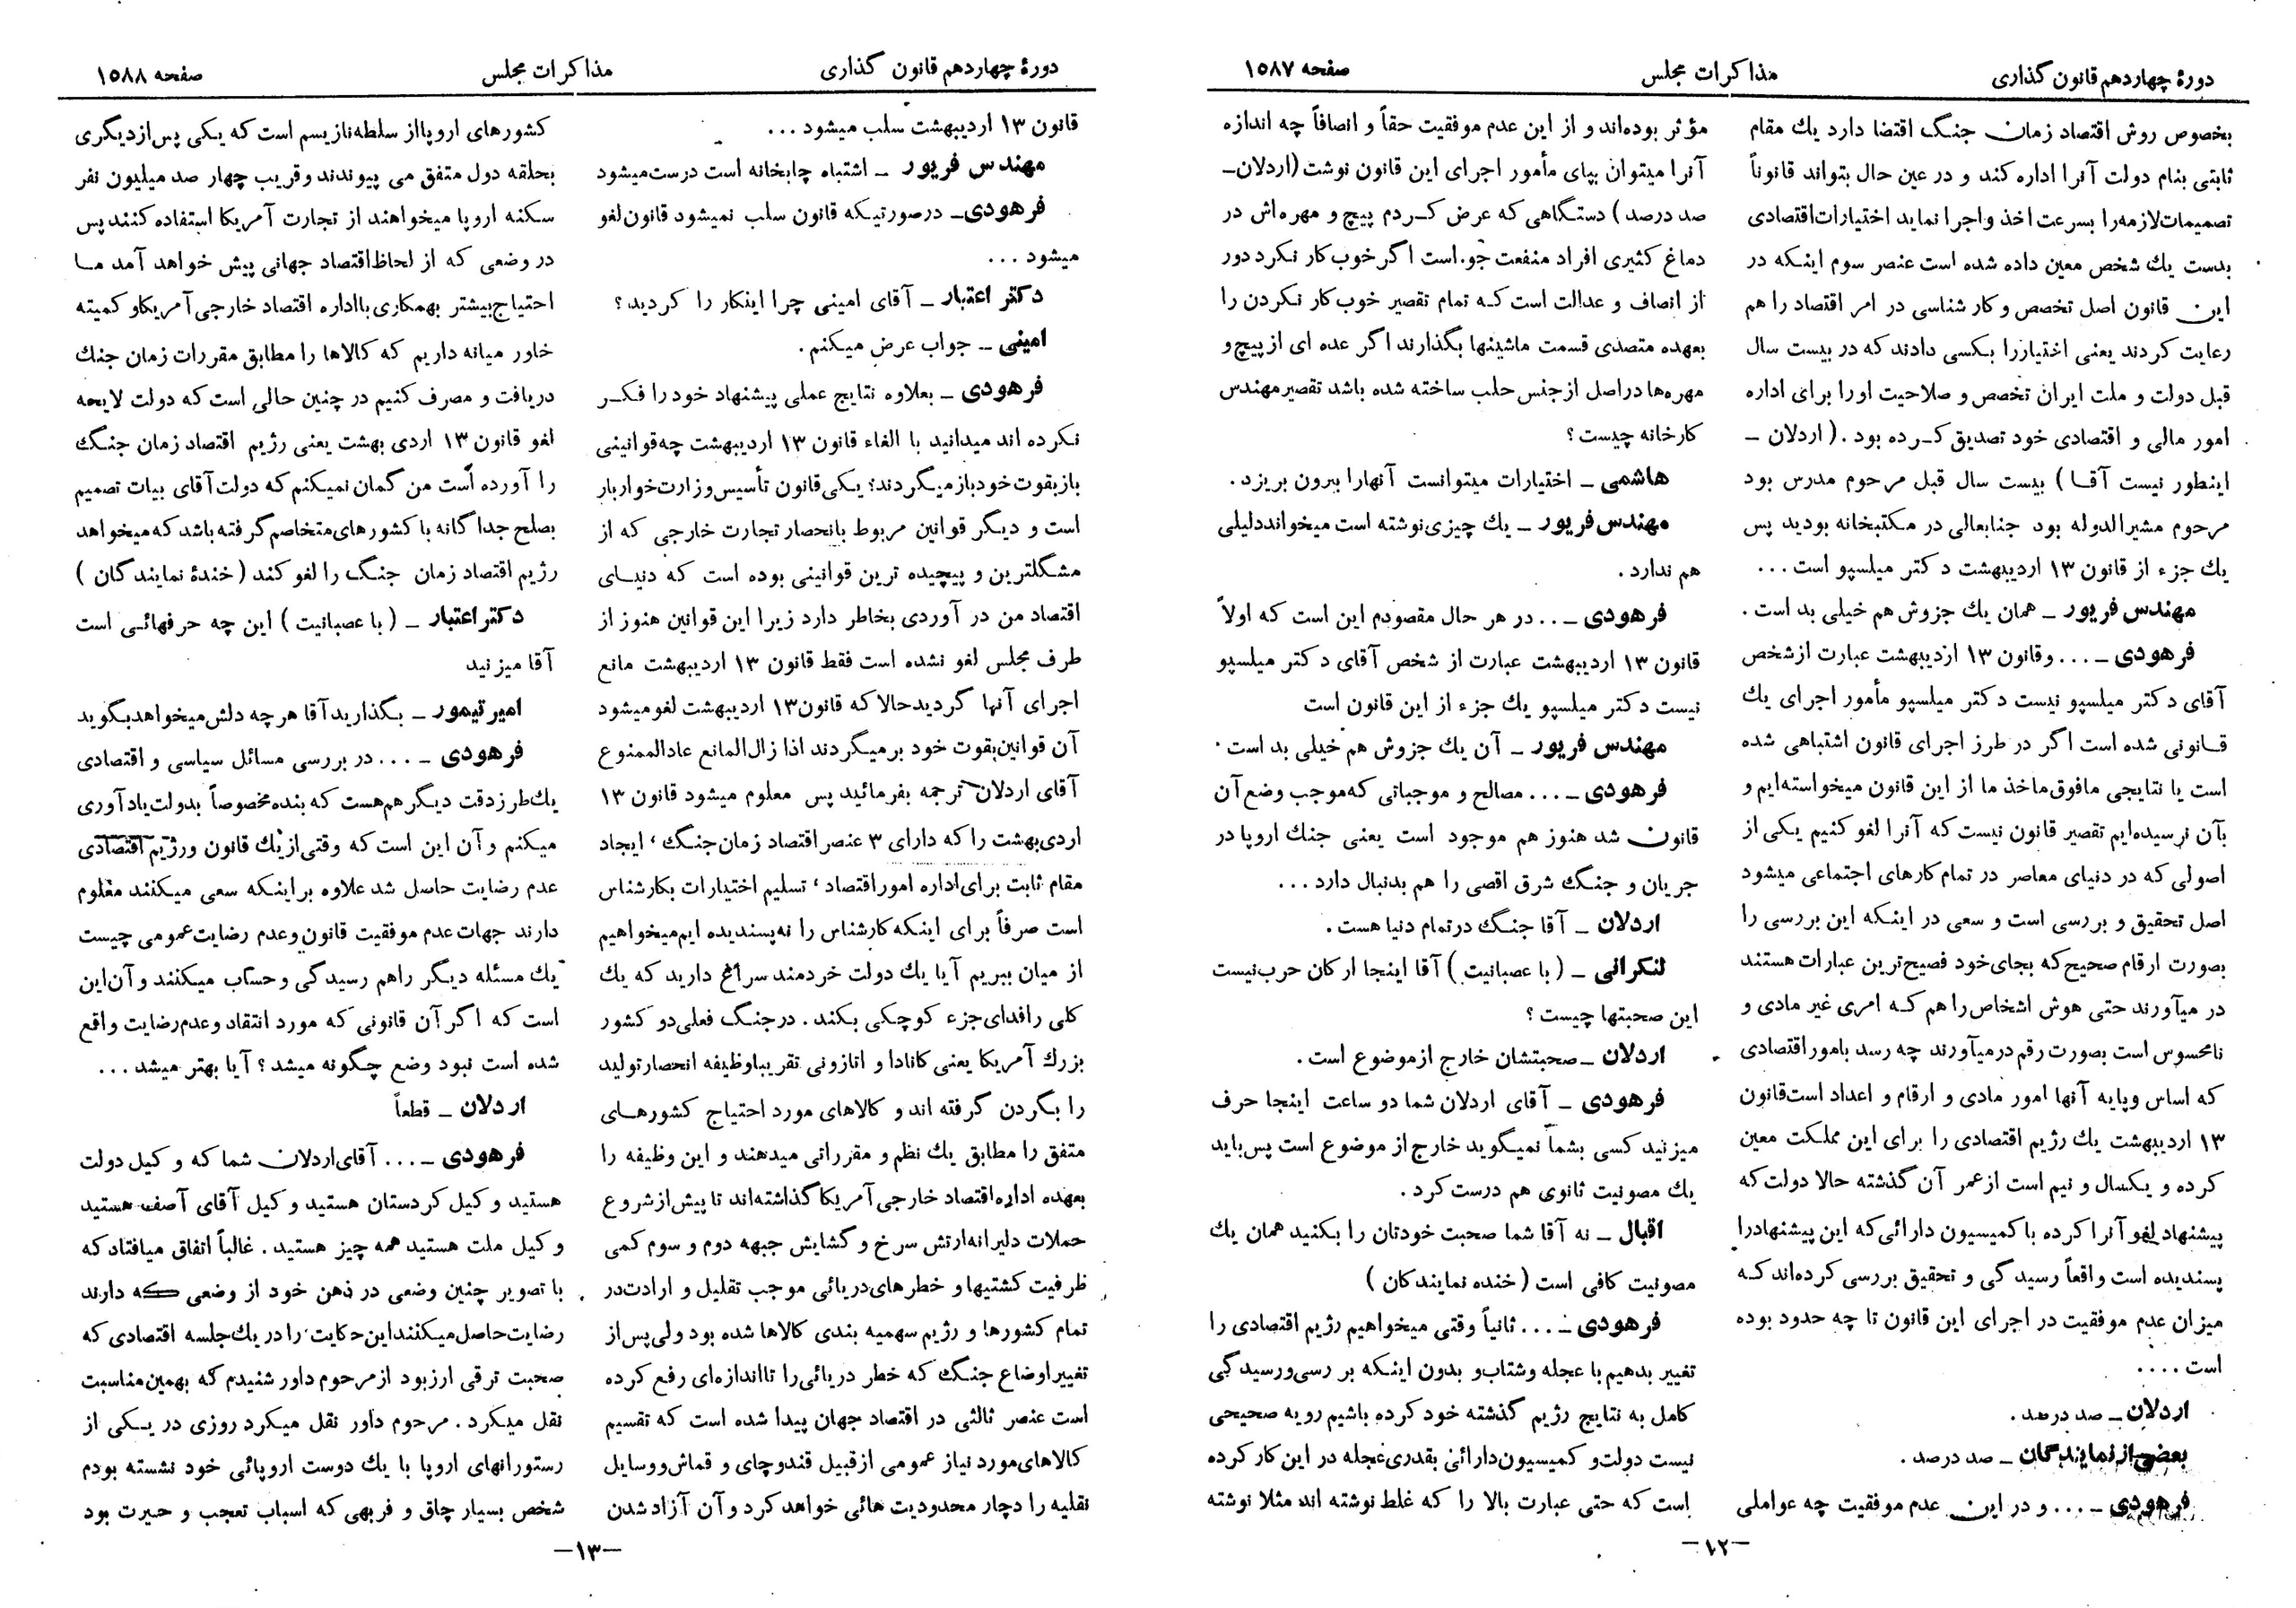 دورهٔ چهاردهم قانون گذاری
مذاکرات مجلس
صفحه ۱۵۸۷
بخصوص روش اقتصاد زمان جنگ اقتضا دارد یك مقام
ثابتی بنام دولت آنرا اداره کند و در عین حال بتواند قانوناً
تصمیمات لازمه را بسرعت اخذ و اجرا نماید اختیارات اقتصادی
بدست یك شخص معین داده شده است عنصر سوم اینکه در
این قانون اصل تخصص و کار شناسی در امر اقتصاد را هم
رعایت کردند یعنی اختیار را بکسی دادند که در بیست سال
قبل دولت و ملت ایران تخصص و صلاحیت اورا برای اداره
امور مالی و اقتصادی خود تصدیق کرده بود . ( اردلان –
اینطور نیست آقا ) بیست سال قبل مرحوم مدرس بود
مرحوم مشیرالدوله بود جنابعالی در مکتبخانه بودید پس
یك جزء از قانون ۱۳ اردیبهشت دکتر میلسپو است ...
مهندس فریور – همان یك جزوش هم خیلی بد است .
فرهودی – ... و قانون ۱۳ اردیبهشت عبارت از شخص
آقای دکتر میلسپو نیست دکتر میلسپو مأمور اجرای یك
قانونی شده است اگر در طرز اجرای قانون اشتباهی شده
است یا نتایجی مافوق ماخذ ما از این قانون میخواسته‌ایم و
بآن نرسیده‌ایم تقصیر قانون نیست که آنرا لغو کنیم یکی از
اصولی که در دنیای معاصر در تمام کارهای اجتماعی میشود
اصل تحقیق و بررسی است و سعی در اینکه این بررسی را
بصورت ارقام صحیح که بجای خود فصیح‌ترین عبارات هستند
در میآورند حتی هوش اشخاص را هم که امری غیر مادی و
نامحسوس است بصورت رقم درمیآورند چه رسد بامور اقتصادی
که اساس و پایه آنها امور مادی و ارقام و اعداد است قانون
۱۳ اردیبهشت یك رژیم اقتصادی را برای این مملکت معین
کرده و یکسال و نیم است از عمر آن گذشته حالا دولت که
پیشنهاد لغو آنرا کرده با کمیسیون دارائی که این پیشنهاد را
پسندیده است واقعاً رسیدگی و تحقیق بررسی کرده‌اند که
میزان عدم موفقیت در اجرای این قانون تا چه حدود بوده
است ....
اردلان – صد درصد .
بعضی از نمایندگان – صد درصد .
فرهودی – ... و در این عدم موفقیت چه عواملی
مؤثر بوده‌اند و از این عدم موفقیت حقاً و انصافاً چه اندازه
آنرا میتوان بپای مأمور اجرای این قانون نوشت ( اردلان –
صد درصد ) دستگاهی که عرض کردم پیچ و مهره‌اش در
دماغ کثیری افراد منفعت جو است اگر خوب کار نکرد دور
از انصاف و عدالت است که تمام تقصیر خوب کار نکردن را
بعهده متصدی قسمت ماشینها بگذارند اگر عده ای از پیچ و
مهره‌ها در اصل از جنس حلب ساخته شده باشد تقصیر مهندس
کارخانه چیست ؟
هاشمی – اختیارات میتوانست آنهارا بیرون بریزد .
مهندس فریور – یك چیزی نوشته است میخواند دلیلی
هم ندارد .
فرهودی – .. . در هر حال مقصودم این است که اولاً
قانون ۱۳ اردیبهشت عبارت از شخص آقای دکتر میلسپو
نیست دکتر میلسپو یك جزء از این قانون است
مهندس فریور – آن یك جزوش هم خیلی بد است .
فرهودی – ... مصالح و موجباتی که موجب وضع آن
قانون شد هنوز هم موجود است یعنی جنك اروپا در
جریان و جنگ شرق اقصی را هم بدنبال دارد ...
اردلان – آقا جنگ در تمام دنیا هست .
لنکرانی – ( با عصبانیت ) آقا اینجا ارکان حرب نیست
این صحبتها چیست ؟
اردلان – صحبتشان خارج از موضوع است .
فرهودی – آقای اردلان شما دو ساعت اینجا حرف
میزنید کسی بشما نمیگوید خارج از موضوع است پس باید
یك مصونیت ثانوی هم درست کرد .
اقبال – نه آقا شما صحبت خودتان را بکنید همان یك
مصونیت کافی است ( خنده نمایندکان )
فرهودی – ... ثانیاً وقتی میخواهیم رژیم اقتصادی را
تغییر بدهیم با عجله و شتاب و بدون اینکه بر رسی و رسیدگی
کامل به نتایج رژیم گذشته خود کرده باشیم رویه صحیحی
نیست دولت و کمیسیون دارائی بقدری عجله در این کار کرده
است که حتی عبارت بالا را که غلط نوشته اند مثلا نوشته
–۱۲–
دورهٔ چهاردهم قانون گذاری
مذاکرات مجلس
صفحه ۱۵۸۸
قانون ۱۳ اردیبهشت سلب میشود ...
مهندس فریور – اشتباه چابخانه است درست میشود
فرهودی – درصورتیکه قانون سلب نمیشود قانون لغو
میشود ...
دکتر اعتبار – آقای امینی چرا اینکار را کردید ؟
امینی – جواب عرض میکنم .
فرهودی – بعلاوه نتایج عملی پیشنهاد خود را فکر
نکرده اند میدانید با الغاء قانون ۱۳ اردیبهشت چه قوانینی
باز بقوت خود باز میگردند ؛ یکی قانون تأسیس وزارت خواربار
است و دیگر قوانین مربوط بانحصار تجارت خارجی که از
مشگلترین و پیچیده ترین قوانینی بوده است که دنیای
اقتصاد من در آوردی بخاطر دارد زیرا این قوانین هنوز از
طرف مجلس لغو نشده است فقط قانون ۱۳ اردیبهشت مانع
اجرای آنها گردید حالا که قانون ۱۳ اردیبهشت لغو میشود
آن قوانین بقوت خود برمیگردند اذا زال المانع عاد الممنوع
آقای اردلان ترجمه بفرمائید پس معلوم میشود قانون ۱۳
اردی‌بهشت را که دارای ۳ عنصر اقتصاد زمان جنگ ، ایجاد
مقام ثابت برای اداره امور اقتصاد ، تسلیم اختیارات بکارشناس
است صرفاً برای اینکه کارشناس را نه پسندیده ایم میخواهیم
از میان ببریم آیا یك دولت خردمند سراغ دارید که یك
کلی را فدای جزء کوچکی بکند . در جنگ فعلی دو کشور
بزرك آمریکا یعنی کانادا و اتازونی تقریبا وظیفه انحصار تولید
را بگردن گرفته اند و کالاهای مورد احتیاج کشورهای
متفق را مطابق یك نظم و مقرراتی میدهند و این وظیفه را
بعهده اداره اقتصاد خارجی آمریکا گذاشته‌اند تا پیش از شروع
حملات دلیرانه ارتش سرخ و گشایش جبهه دوم و سوم کمی
ظرفیت کشتیها و خطرهای دریائی موجب تقلیل و ارادت در
تمام کشورها و رژیم سهمیه بندی کالاها شده بود ولی پس از
تغییر اوضاع جنگ که خطر دریائی را تا اندازه‌ای رفع کرده
است عنصر ثالثی در اقتصاد جهان پیدا شده است که تقسیم
کالاهای مورد نیاز عمومی از قبیل قند و چای و قماش و وسایل
نقلیه را دچار محدودیت هائی خواهد کرد و آن آزاد شدن
کشورهای اروپا از سلطه نازیسم است که یکی پس از دیگری
بحلقه دول متفق می پیوندند و قریب چهار صد میلیون نفر
سکنه اروپا میخواهند از تجارت آمریکا استفاده کنند پس
در وضعی که از لحاظ اقتصاد جهانی پیش خواهد آمد ما
احتیاج بیشتر بهمکاری با اداره اقتصاد خارجی آمریکا و کمیته
خاور میانه داریم که کالاها را مطابق مقررات زمان جنك
دریافت و مصرف کنیم در چنین حالی است که دولت لایحه
لغو قانون ۱۳ اردی بهشت یعنی رژیم اقتصاد زمان جنگ
را آورده است من گمان نمیکنم که دولت آقای بیات تصمیم
بصلح جداگانه با کشورهای متخاصم گرفته باشد که میخواهد
رژیم اقتصاد زمان جنگ را لغو کند ( خندهٔ نمایندگان )
دکتر اعتبار – ( با عصبانیت ) این چه حرفهائی است
آقا میزنید
امیر تیمور – بگذارید آقا هر چه دلش میخواهد بگوید
فرهودی – ... در بررسی مسائل سیاسی و اقتصادی
یك طرز دقت دیگر هم هست که بنده مخصوصاً بدولت یادآوری
میکنم و آن این است که وقتی از یك قانون و رژیم اقتصادی
عدم رضایت حاصل شد علاوه بر اینکه سعی میکنند معلوم
دارند جهات عدم موفقیت قانون و عدم رضایت عمومی چیست
یك مسئله دیگر راهم رسیدگی و حساب میکنند و آن این
است که اگر آن قانونی که مورد انتقاد و عدم رضایت واقع
شده است نبود وضع چگونه میشد ؟ آیا بهتر میشد ...
اردلان – قطعاً
فرهودی – ... آقای اردلان شما که وکیل دولت
هستید وکیل کردستان هستید وکیل آقای آصف هستید
وکیل ملت هستید همه چیز هستید . غالباً اتفاق میافتاد که
با تصویر چنین وضعی در ذهن خود از وضعی که دارند
رضایت حاصل میکنند این حکایت را در یك جلسه اقتصادی که
صحبت ترقی ارز بود از مرحوم داور شنیدم که بهمین مناسبت
نقل میکرد . مرحوم داور نقل میکرد روزی در یکی از
رستورانهای اروپا با یك دوست اروپائی خود نشسته بودم
شخص بسیار چاق و فربهی که اسباب تعجب و حیرت بود
–۱۳–